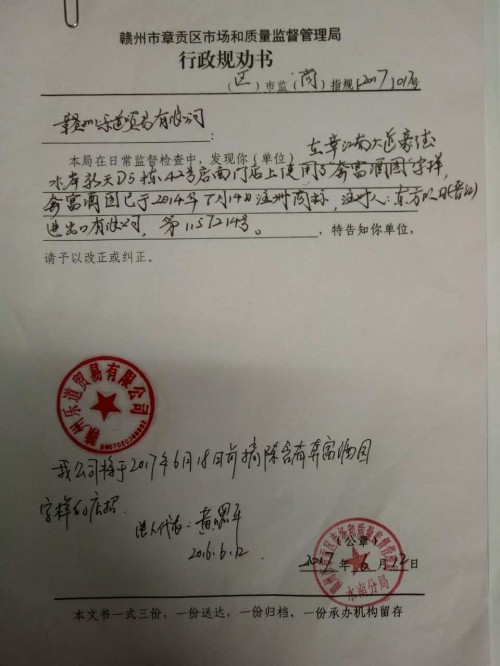 赣州市章贡区市场和质量监督管理局
行政规劝书
（区）市监（商）指规[2017]017号
赣州乐道贸易有限公司：
本局在日常监督检查中，发现你（单位）在章江南大道豪德
水岸新天D5栋42号店面门店上使用了奔富酒园字样，
奔富酒园已于2014年7月14日注册商标，注册人：东方
进出口有限公司，第11571214号。，特告知你单位，
请予以改正或纠正。
赣州乐道贸易有限公司
我公司将于2017年6月18日前摘除含有奔富酒园
字样的店招.
法人代表：黄
2016.6.12
（公章）
赣州市章贡区市场和质量监督管理局
水南分局
2017年6月12日
本文书一式三份，一份送达，一份归档，一份承办机构留存